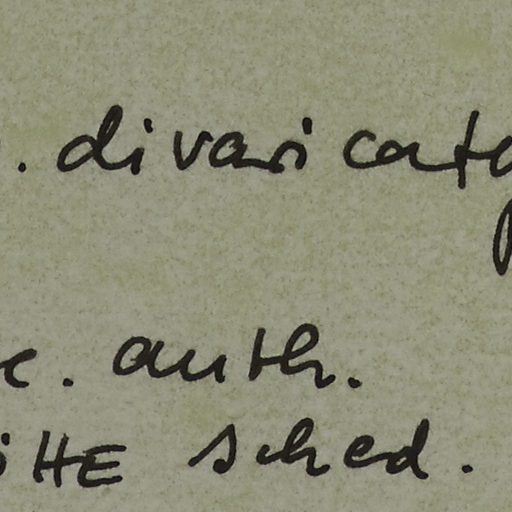 . divaricata
c. auth.
sched.